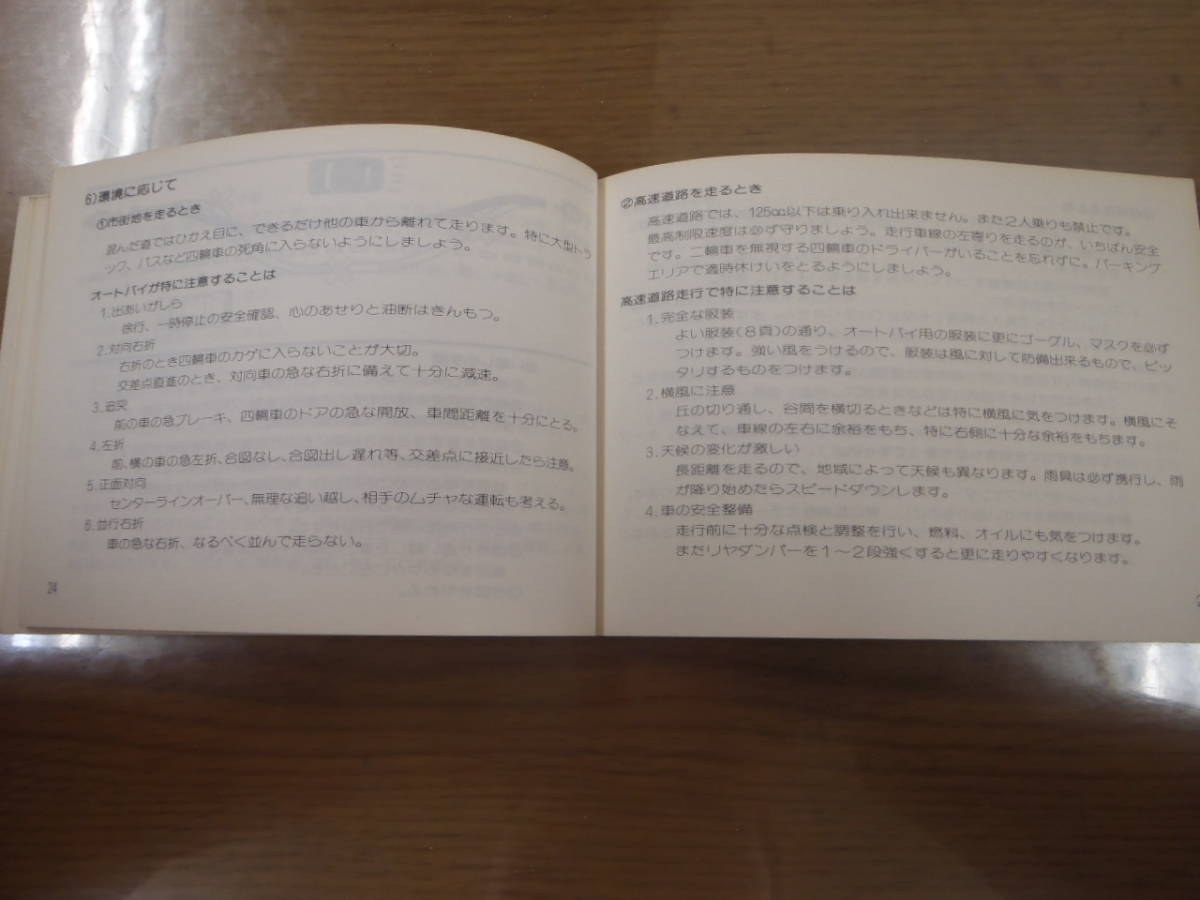 6)環境に応じて
①市街地を走るとき
混んだ道ではひかえ目に、できるだけ他の車から離れて走ります。特に大型トラ
ック、バスなど四輪車の死角に入らないようにしましょう。
オートバイが特に注意することは
1.出あいがしら
徐行、一時停止の安全確認、心のあせりと油断はきんもつ。
2.対向右折
右折のとき四輪車のカゲに入らないことが大切。
交差点直進のとき、対向車の急な右折に備えて十分に減速。
3.追突
前の車の急ブレーキ、四輪車のドアの急な開放、車間距離を十分にとる。
4.左折
前、横の車の急左折、合図なし、合図出し遅れ等、交差点に接近したら注意。
5.正面対向
センターラインオーバー、無理な追い越し、相手のムチャな運転も考える。
6.並行右折
車の急な右折、なるべく並んで走らない。
24
②高速道路を走るとき
高速道路では、125cc以下は乗り入れ出来ません。また2人乗りも禁止です。
最高制限速度は必ず守りましょう。走行車線の左寄りを走るのが、いちばん安全
です。二輪車を無視する四輪車のドライバーがいることを忘れずに。パーキング
エリアで適時休けいをとるようにしましょう。
高速道路走行で特に注意することは
1.完全な服装
よい服装(8頁)の通り、オートバイ用の服装に更にゴーグル、マスクを必ず
つけます。強い風をうけるので、服装は風に対して防備出来るもので、ピッ
タリするものをつけます。
2.横風に注意
丘の切り通し、谷間を横切るときなどは特に横風に気をつけます。横風にそ
なえて、車線の左右に余裕をもち、特に右側に十分な余裕をもちます。
3.天候の変化が激しい
長距離を走るので、地域によって天候も異なります。雨具は必ず携行し、雨
が降り始めたらスピードダウンします。
4.車の安全整備
走行前に十分な点検と調整を行い、燃料、オイルにも気をつけます。
またリヤダンパーを1～2段強くすると更に走りやすくなります。